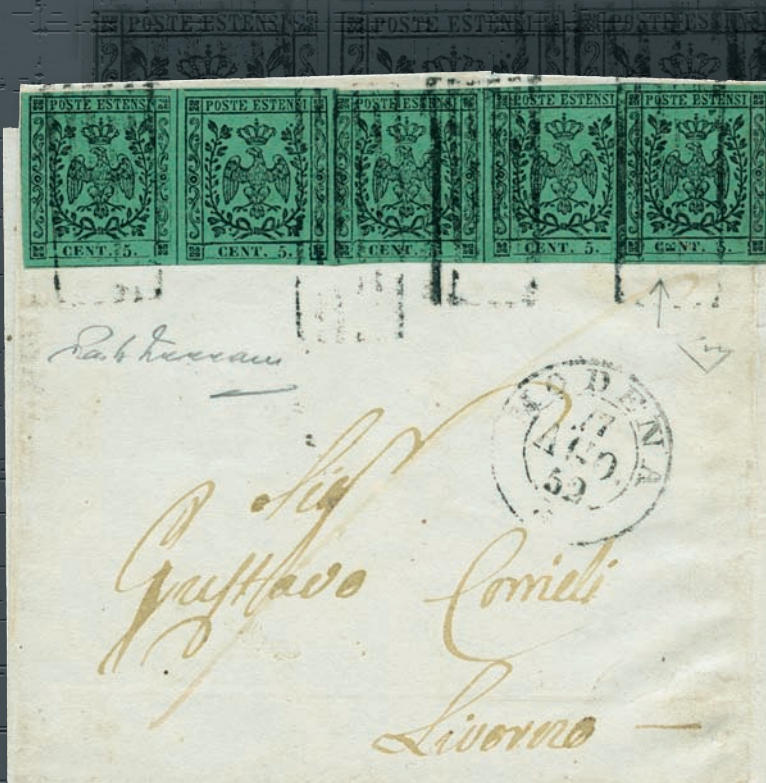 POSTE ESTENSI POSTE ESTENSI POSTE ESTENSI
POSTE ESTENSI POSTE ESTENSI POSTE ESTENSI POSTE ESTENSI POSTE ESTENSI
CENT. 5. CENT. 5. CENT. 5. CENT. 5. CENT. 5.
MODENA
17
AGO
52
Sig
Gusttavo Corrieli
Livorno